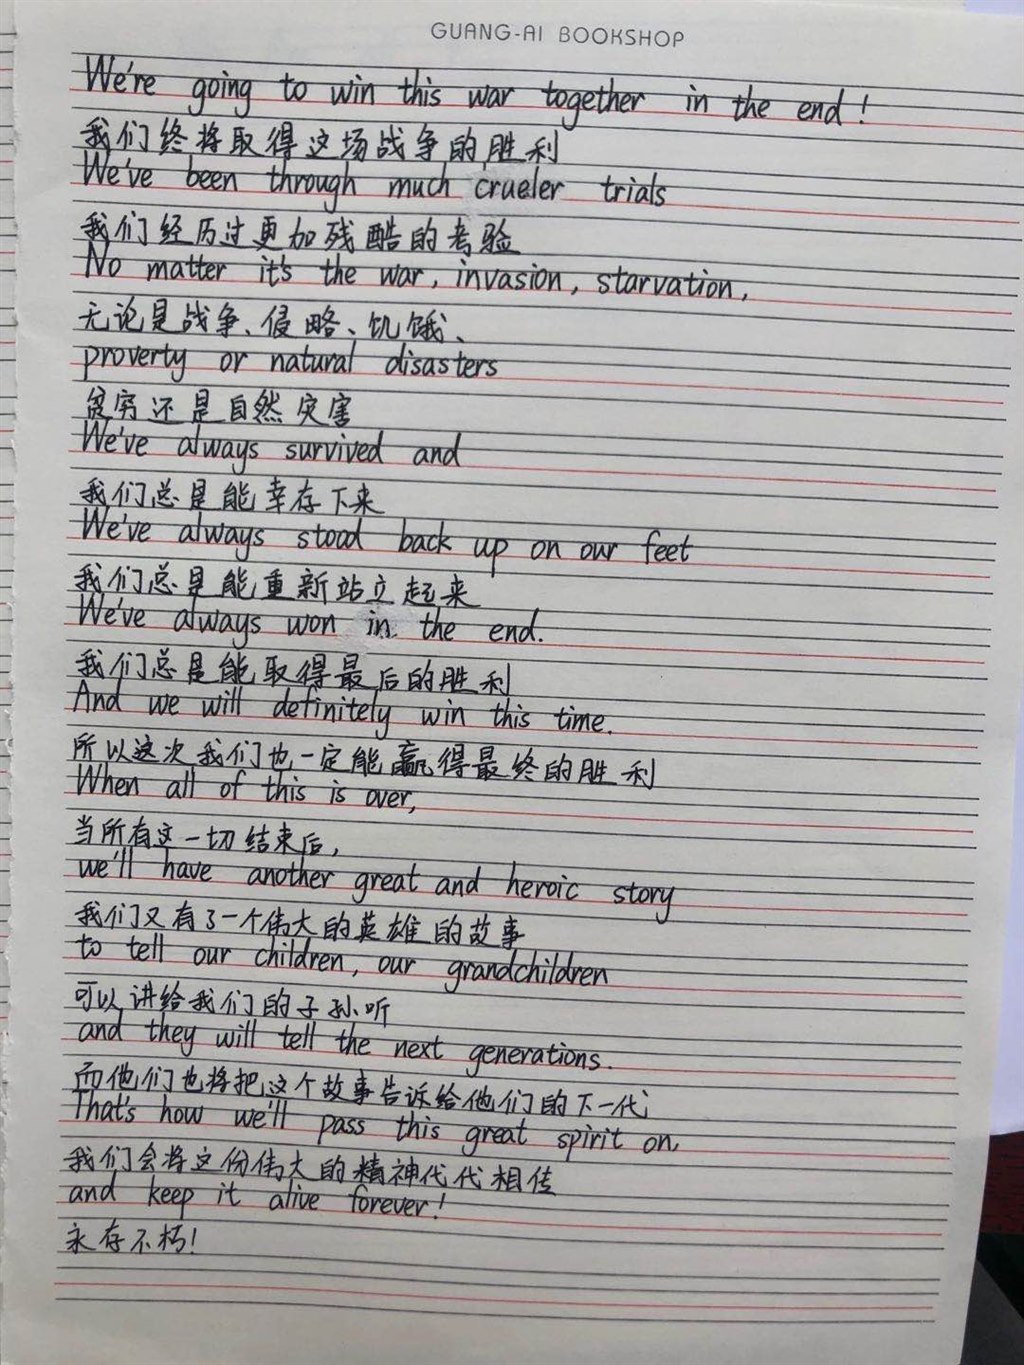 GUANG-AI BOOKSHOP
We're going to win this war together in the end!
我们终将取得这场战争的胜利
We've been through much crueler trials
我们经历过更加残酷的考验
No matter it's the war, invasion, starvation,
无论是战争、侵略、饥饿、
proverty or natural disasters
贫穷还是自然灾害
We've always survived and
我们总是能幸存下来
We've always stood back up on our feet
我们总是能重新站立起来
We've always won in the end.
我们总是能取得最后的胜利
And we will definitely win this time.
所以这次我们也一定能赢得最终的胜利
When all of this is over,
当所有这一切结束后,
we'll have another great and heroic story
我们又有了一个伟大的英雄的故事
to tell our children, our grandchildren
可以讲给我们的子孙听
and they will tell the next generations.
而他们也将把这个故事告诉给他们的下一代
That's how we'll pass this great spirit on,
我们会将这份伟大的精神代代相传
and keep it alive forever!
永存不朽!